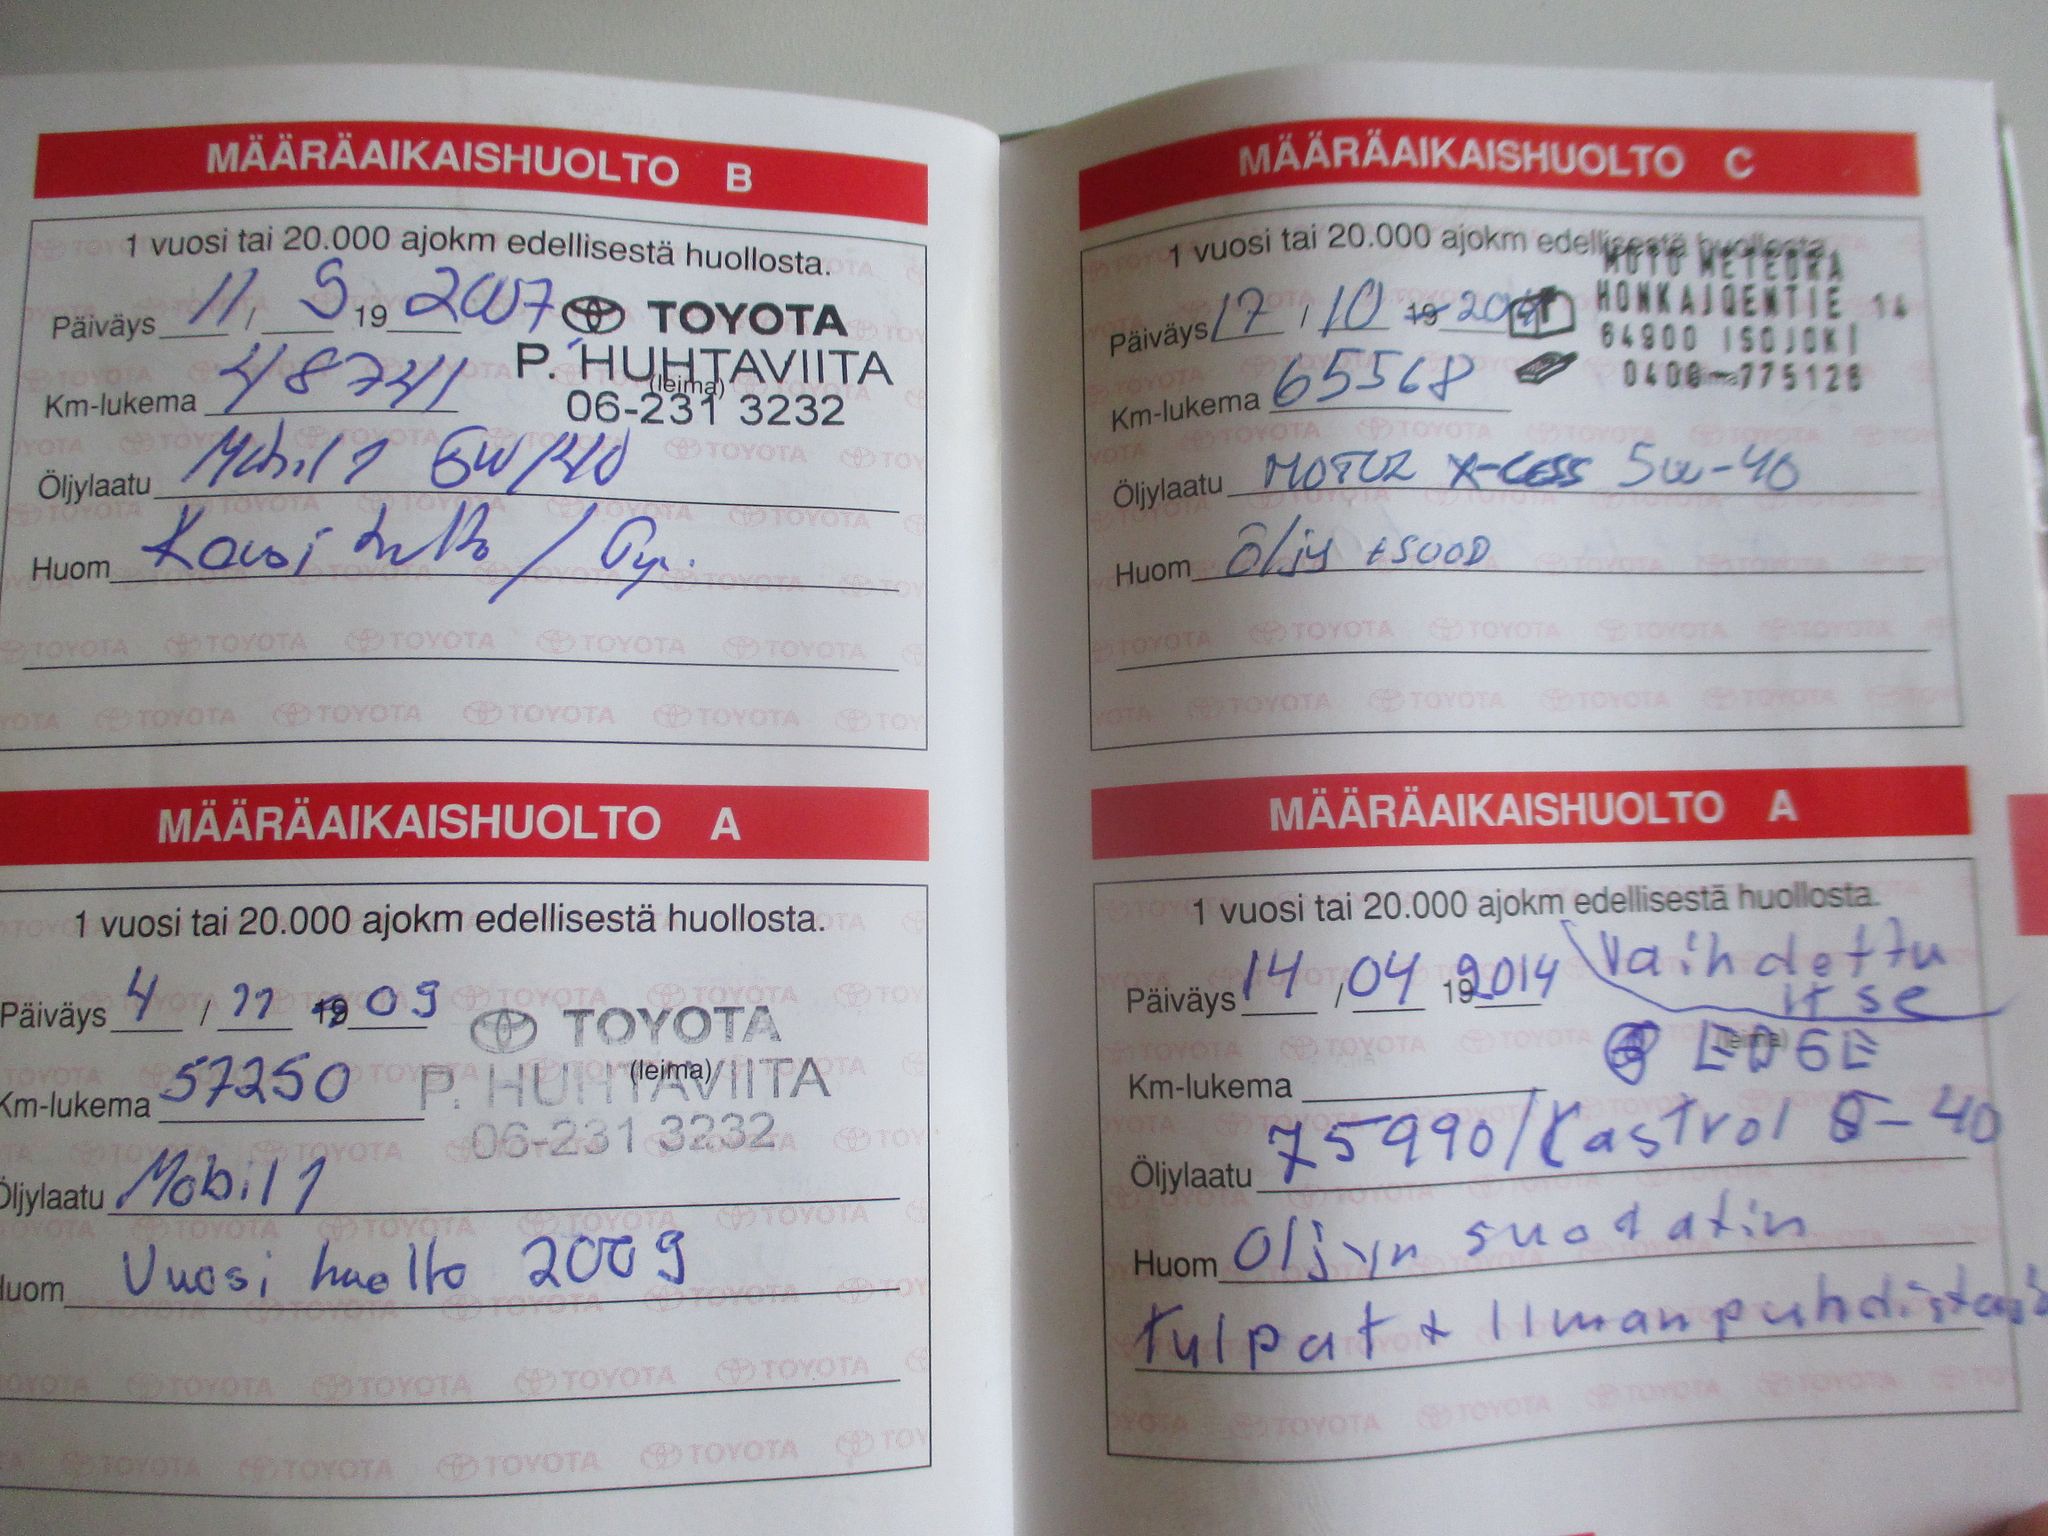 MÄÄRÄAIKAISHUOLTO B
1 vuosi tai 20.000 ajokm edellisestä huollosta.
Päiväys 11 / 9 19 2007
TOYOTA
P. HUHTAVIITA
Km-lukema 48741
(leima)
06-231 3232
Öljylaatu Mobil 1 5W/40
Huom
MÄÄRÄAIKAISHUOLTO A
1 vuosi tai 20.000 ajokm edellisestä huollosta.
Päiväys 4 / 11 19 09
TOYOTA
Km-lukema 57250
(leima)
P. HUHTAVIITA
06-231 3232
Öljylaatu Mobil 1
Huom Vuosi huolto 2009
MÄÄRÄAIKAISHUOLTO C
1 vuosi tai 20.000 ajokm edellisestä huollosta.
MOTO METEORA
HONKAJOENTIE 14
64900 ISOJOKI
0400-775128
Päiväys 17 / 10 19
Km-lukema 65568
Öljylaatu MOTUL X-CESS 5W-40
Huom Öljy +SUOD
MÄÄRÄAIKAISHUOLTO A
1 vuosi tai 20.000 ajokm edellisestä huollosta.
Päiväys 14 / 04 19 2014
Vaihdettu
itse
EDGE
(leima)
Km-lukema
Öljylaatu 75990/Kastrol 5-40
Huom Oljyn suodatin
tulpat + Ilmanpuhdistaja
TOYOTA